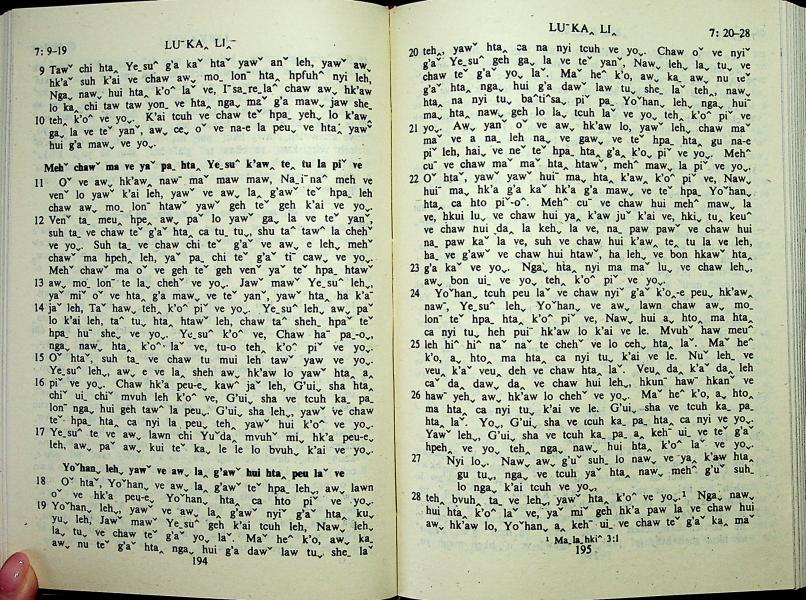 7: 9–19
LUˇ KAˬ LIˬ
9 Tawˇ chi htaˬ Yeˬsuˆ g'a kaˇ htaˇ yawˇ anˇ leh, yawˇ awˬ
hk'aˇ suh k'ai ve chaw awˬ moˬ lonˉ htaˬ hpfuhˆ nyi leh,
Ngaˬ nawˬ hui htaˬ k'oˆ laˇ ve, Iˉsaˬreˬlaˆ chaw awˬ hk'aw
lo kaˬ chi taw taw yonˬ ve htaˬ ngaˬ maˇ g'a maw jaw sheˬ
10 tehˬ k'oˆ ve yoˬ. K'ai tcuh ve chaw teˇ hpaˬ yehˬ lo k'awˬ
gaˬ la ve teˇ yanˇ, awˬ ceˬ oˇ ve na-e la peuˬ ve htaˬ yawˇ
hui g'a maw ve yoˬ.
Mehˇ chawˇ ma ve yaˇ paˬ htaˬ Yeˬsuˆ k'awˬ teˬ tu la piˇ ve
11 Oˇ ve awˬ hk'aw nawˉ maˇ maw maw, Naˬiˉnaˆ meh ve
venˇ lo yawˇ k'ai leh, yawˇ ve awˬ laˬ g'awˇ teˇ hpaˬ leh
chaw awˬ moˬ lonˉ htawˇ yawˇ geh teˇ geh k'ai ve yoˬ.
12 Venˇ taˬ meuˬ hpeˬ awˬ paˇ lo yawˇ gaˬ la ve teˇ yanˇ
suh taˬ ve chaw teˇ g'aˇ htaˬ ca tuˬ tuˬ, shu taˆ tawˆ la chehˇ
ve yoˬ. Suh taˬ ve chaw chi teˇ g'aˇ ve awˬ e leh, mehˇ
chawˇ ma hpeh leh, yaˇ paˬ chi teˇ g'aˇ tiˉ cawˬ ve yoˬ.
Mehˇ chawˇ ma oˇ ve geh teˇ geh venˇ yaˇ teˇ hpaˬ htawˇ
13 awˬ moˬ lonˉ te laˬ chehˇ ve yoˬ. Jawˇ mawˇ Yeˬsuˆ lehˬ,
yaˇ miˇ oˇ ve htaˬ g'a mawˬ ve teˇ yanˇ, yawˇ htaˬ ha k'aˇ
14 jaˇ leh, Taˇ hawˬ tehˬ k'oˆ piˇ ve yoˬ. Yeˬsuˆ leh, awˬ paˇ
lo k'ai leh, taˆ tuˬ htaˬ htawˇ leh, chaw taˆ shehˬ hpaˇ teˇ
hpaˬ huˉ sheˬ ve yoˬ. Yeˬsuˆ k'oˆ ve, Chaw haˉ paˬ-oˬ,
ngaˬ nawˬ htaˬ k'oˆ laˇ ve, tu-o tehˬ k'oˆ piˇ ve yoˬ.
15 Oˇ htaˇ, suh taˬ ve chaw tu mui leh tawˇ yaw ve yoˬ.
Yeˬsuˆ lehˬ, awˬ e ve laˬ sheh awˬ hk'aw lo yawˇ htaˬ aˬ
16 piˇ ve yoˬ. Chaw hk'a peu-eˬ kawˆ jaˇ leh, G'uiˬ sha htaˬ
chiˇ uiˬ chiˇ mvuh leh k'oˆ ve, G'uiˬ sha ve tcuh kaˬ paˬ
lonˉ ngaˬ hui geh tawˆ la peuˬ. G'uiˬ sha lehˬ, yawˇ ve chaw
teˇ hpaˬ htaˬ ca nyi la peuˬ tehˬ yawˇ hui k'oˆ ve yoˬ.
17 Yeˬsuˆ te ve awˬ lawn chi Yuˇdaˬ mvuhˇ miˬ hk'a peu-eˬ
leh, awˬ paˇ awˬ kui teˇ kaˬ le le lo bvuhˬ k'ai ve yoˬ.
Yoˇhanˬ lehˬ, yawˇ ve awˬ laˬ g'awˇ hui htaˬ peu laˇ ve
18 Oˇ htaˇ, Yoˇhanˬ ve awˬ laˬ g'awˇ teˇ hpaˬ lehˬ, awˬ lawn
oˇ ve hk'a peu-eˬ Yoˇhanˬ htaˬ ca hto piˇ ve yoˬ.
19 Yoˇhanˬ lehˬ, yawˇ ve awˬ laˬ g'awˇ nyiˇ g'aˇ htaˬ kuˬ
yuˬ leh, Jawˇ mawˇ Yeˬsuˆ geh k'ai tcuh leh, Nawˬ lehˬ
laˬ tuˬ ve chaw teˇ g'aˇ yoˬ laˇ. Maˇ heˆ k'o, awˬ kaˬ
awˬ nu teˇ g'aˇ htaˬ ngaˬ hui g'a dawˇ law tuˬ sheˬ laˇ
194
LUˇ KAˬ LIˬ
7: 20–28
20 tehˬ, yawˇ htaˬ ca na nyi tcuh ve yoˬ. Chaw oˇ ve nyiˇ
g'aˇ Yeˬsuˆ geh gaˬ la ve teˇ yanˇ, Nawˬ lehˬ laˬ tuˬ ve
chaw teˇ g'aˇ yoˬ laˇ. Maˇ heˆ k'o, awˬ kaˬ awˬ nu teˇ
g'aˇ htaˬ ngaˬ hui g'a dawˇ law tuˬ sheˬ laˇ tehˬ, nawˬ
htaˬ na nyi tuˬ baˇtiˆsaˬ piˇ paˬ Yoˇhanˬ lehˬ, ngaˬ hui
maˬ htaˬ nawˬ geh lo laˬ tcuh laˇ ve yoˬ tehˬ k'oˆ piˇ ve
21 yoˬ. Awˬ yanˇ oˇ ve awˬ hk'aw lo, yawˇ lehˬ chaw maˇ
maˇ ve a naˬ leh naˬ ve, gawˬ ve teˇ hpaˬ htaˬ gu na-e
piˇ leh, haiˬ ve neˇ teˇ hpaˬ htaˬ g'aˬ k'oˬ piˇ ve yoˬ. Mehˆ
cuˇ ve chaw ma maˇ htaˬ htawˇ mehˆ mawˬ la piˇ ve yoˬ.
22 Oˇ htaˇ, yaw yawˇ huiˉ maˬ htaˬ k'awˬ k'oˆ piˇ ve, Nawˬ
huiˉ maˬ hk'a g'a kaˇ hk'a g'a mawˬ ve teˇ hpaˬ Yoˇhanˬ
htaˬ ca hto piˇ-oˆ. Mehˆ cuˇ ve chaw hui mehˆ mawˬ la
ve, hkui luˬ ve chaw hui yaˬ k'aw juˇ k'ai ve, hkiˬ tuˬ keuˆ
ve chaw hui daˬ la kehˬ la ve, naˬ paw pawˇ ve chaw hui
naˬ paw kaˇ la ve, suh ve chaw hui k'awˬ teˬ tu la ve leh,
haˬ ve g'awˇ ve chaw hui htawˇ, haˬ leh ve bon hkawˇ htaˬ
23 g'a kaˇ ve yoˬ. Ngaˬ htaˬ nyi ma maˇ luˬ ve chaw lehˬ,
awˬ bon ui ve yoˬ tehˬ k'oˆ piˇ ve yoˬ.
24 Yoˇhanˬ tcuh peu laˇ ve chaw nyiˇ g'aˇ k'oˬ-e peuˬ hk'awˬ
nawˇ, Yeˬsuˆ lehˬ Yoˇhanˬ ve awˬ lawn chaw awˬ moˬ
lonˉ teˇ hpaˬ htaˬ k'oˆ piˇ ve, Nawˬ hui aˬ hto ma htaˬ
ca nyi tuˬ heh pui hk'aw lo k'ai ve le. Mvuhˇ haw meuˆ
25 leh hiˆ hiˆ naˇ naˇ te chehˇ ve lo cehˬ htaˬ laˇ. Maˇ heˆ
k'o, aˬ hto ma htaˬ ca nyi tuˬ k'ai ve le. Nuˇ lehˬ ve
veuˬ k'aˇ veuˬ deh ve chaw htaˬ laˇ. Veuˬ daˬ k'aˇ daˬ leh
caˇ daˬ dawˬ daˬ ve chaw hui lehˬ, hkunˉ hawˇ hkanˇ ve
26 hawˇ yehˬ awˬ hk'aw lo chehˇ ve yoˬ. Maˇ heˆ k'o, aˬ hto
ma htaˬ ca nyi tuˬ k'ai ve le. G'uiˬ sha ve tcuh kaˬ paˬ
htaˬ laˇ. Yoˬ, G'uiˬ sha ve tcuh kaˬ paˬ htaˬ ca nyi ve yoˬ.
Yawˇ lehˬ, G'uiˬ sha ve tcuh kaˬ paˬ aˬ kehˇ uiˬ ve teˇ g'aˇ
hpehˬ ve yoˬ tehˬ ngaˬ nawˬ hui htaˬ k'oˆ laˇ ve yoˬ.
27 Nyi loˬ. Nawˬ awˬ g'uˇ suhˬ lo nawˬ ve yaˬ k'aw htaˬ
gu tuˬ, ngaˬ ve tcuh yaˇ htaˬ nawˬ mehˆ g'uˇ suhˬ
lo ngaˬ k'ai tcuh ve yoˬ.
28 tehˬ bvuhˬ taˬ ve lehˬ, yawˇ htaˬ k'oˆ ve yoˬ.¹ Ngaˬ nawˬ
hui htaˬ k'oˆ laˇ ve, yaˇ miˇ geh hk'a paw la ve chaw hui
awˬ hk'aw lo, Yoˇhanˬ aˬ kehˇ uiˬ ve chaw teˇ g'aˇ kaˬ maˇ
¹ Maˬlaˬhkiˆ 3:1
195